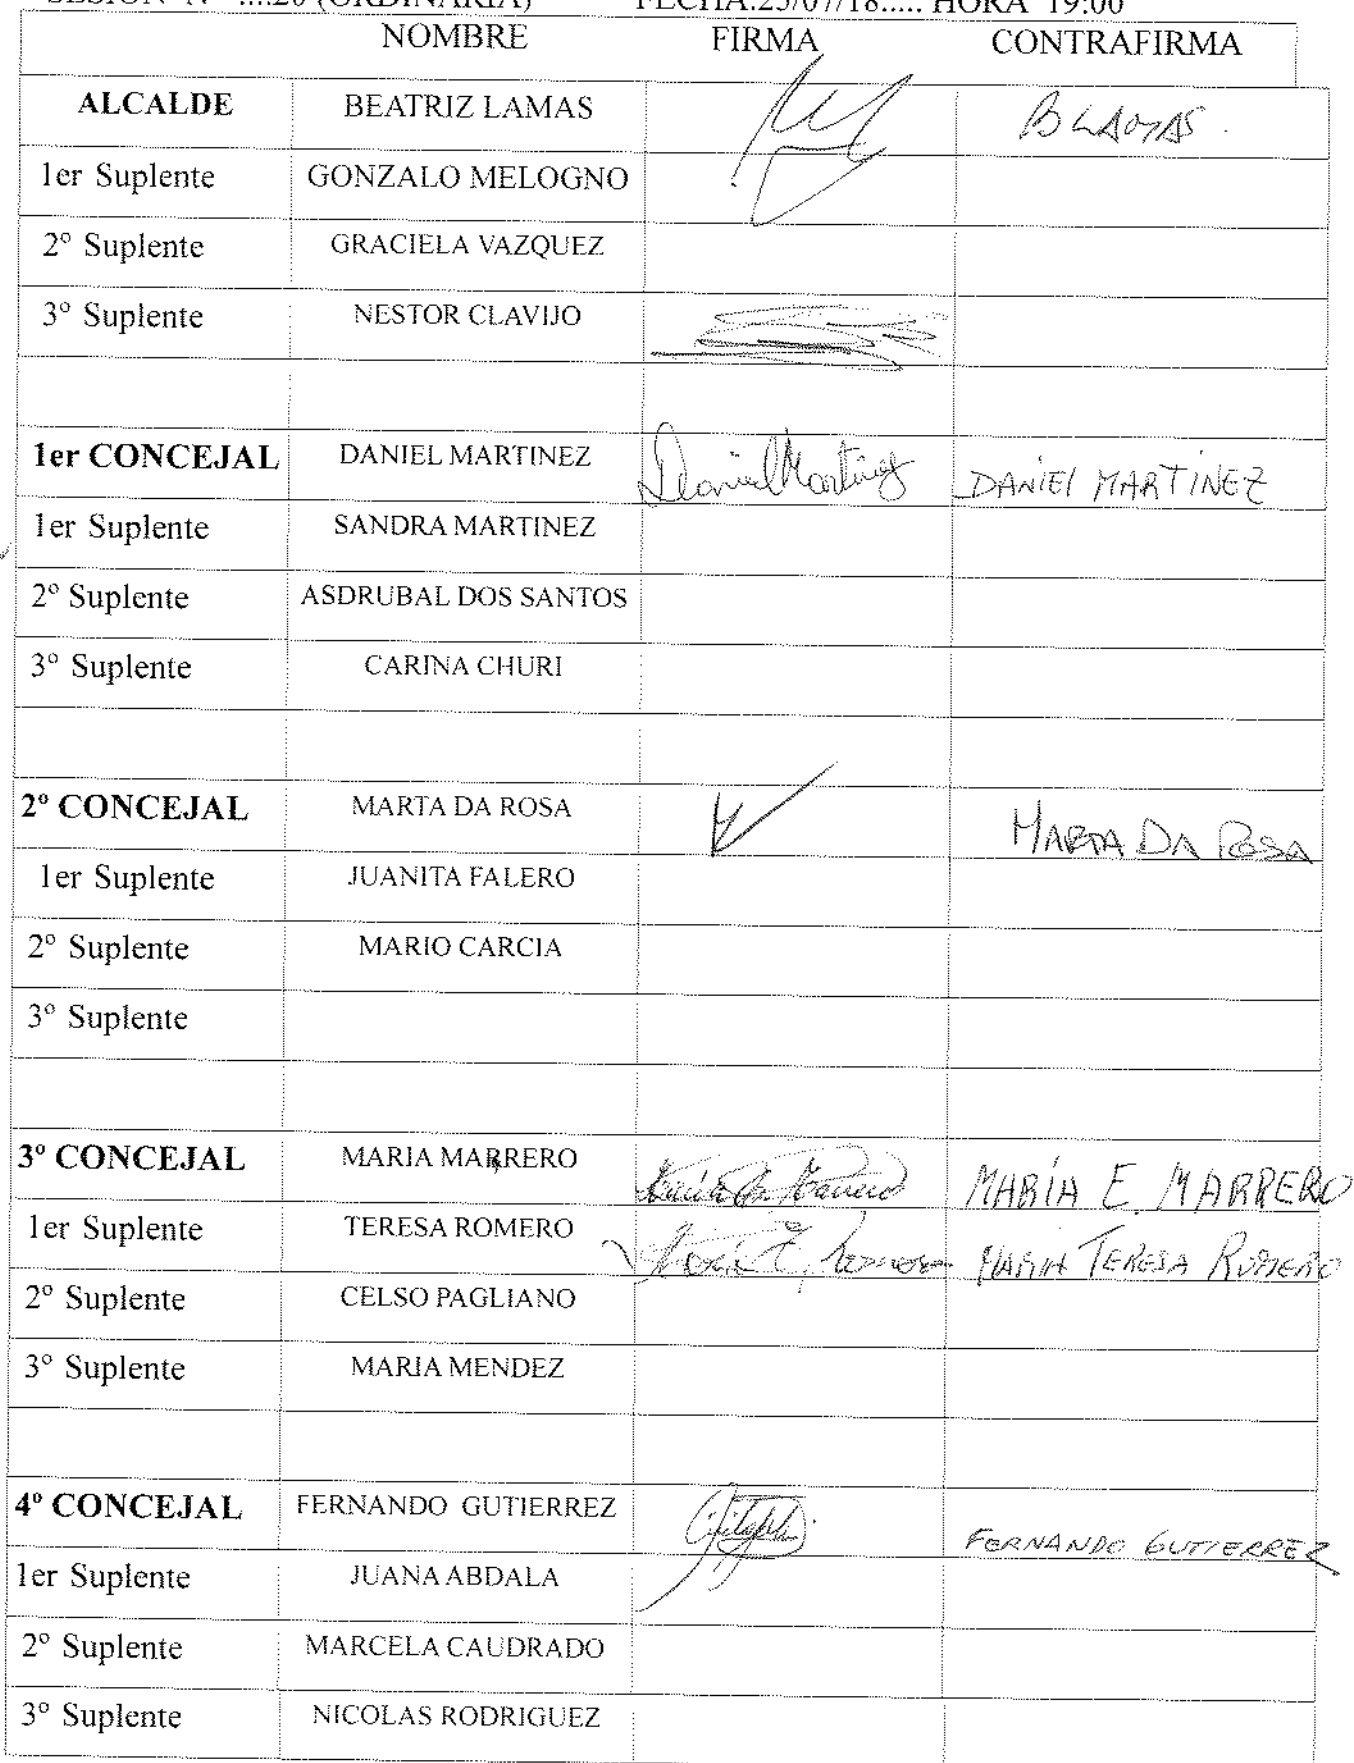 (ORDINARIA) FECHA:25/07/18..... HORA 19:00
NOMBRE FIRMA CONTRAFIRMA
ALCALDE BEATRIZ LAMAS B LAMAS.
1er Suplente GONZALO MELOGNO
2º Suplente GRACIELA VAZQUEZ
3º Suplente NESTOR CLAVIJO
1er CONCEJAL DANIEL MARTINEZ Daniel Martinez DANIEl MARTINEZ
1er Suplente SANDRA MARTINEZ
2º Suplente ASDRUBAL DOS SANTOS
3º Suplente CARINA CHURI
2º CONCEJAL MARTA DA ROSA MARTA DA ROSA
1er Suplente JUANITA FALERO
2º Suplente MARIO CARCIA
3º Suplente
3º CONCEJAL MARIA MARRERO MARÍA E. MARRERO
1er Suplente TERESA ROMERO MARIA TERESA ROMERO
2º Suplente CELSO PAGLIANO
3º Suplente MARIA MENDEZ
4º CONCEJAL FERNANDO GUTIERREZ FERNANDO GUTIERREZ
1er Suplente JUANA ABDALA
2º Suplente MARCELA CAUDRADO
3º Suplente NICOLAS RODRIGUEZ